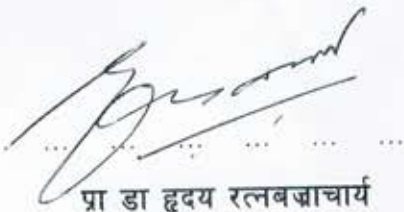 प्रा डा हृदय रत्नबज्राचार्य